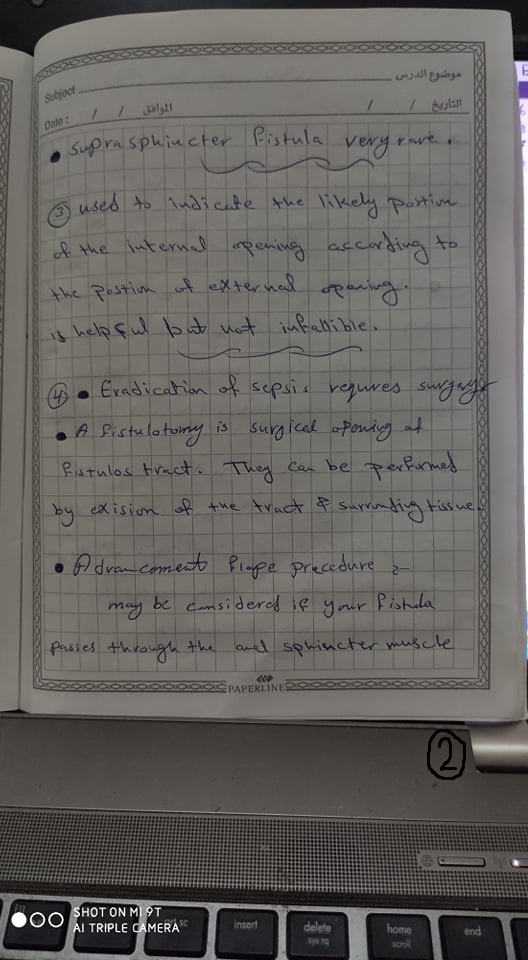 موضوع الدرس
Subject
التاريخ / / الموافق / / Date :
• Suprasphincter fistula very rare.
③ used to indicate the likely postion
of the internal opening according to
the postion of external opening.
is helpful but not infallible.
④ • Eradication of sepsis requres surgery
• A fistulotomy is surgical opening of
fistulos tract. They can be performed
by exision of the tract & surronding tissue.
• Advrancement flape precedure :-
may be considered if your fistula
passes through the anal sphincter muscle
PAPERLINE
②
SHOT ON MI 9T
AI TRIPLE CAMERA
prt sc
insert
delete
sys rq
home
scroll
end